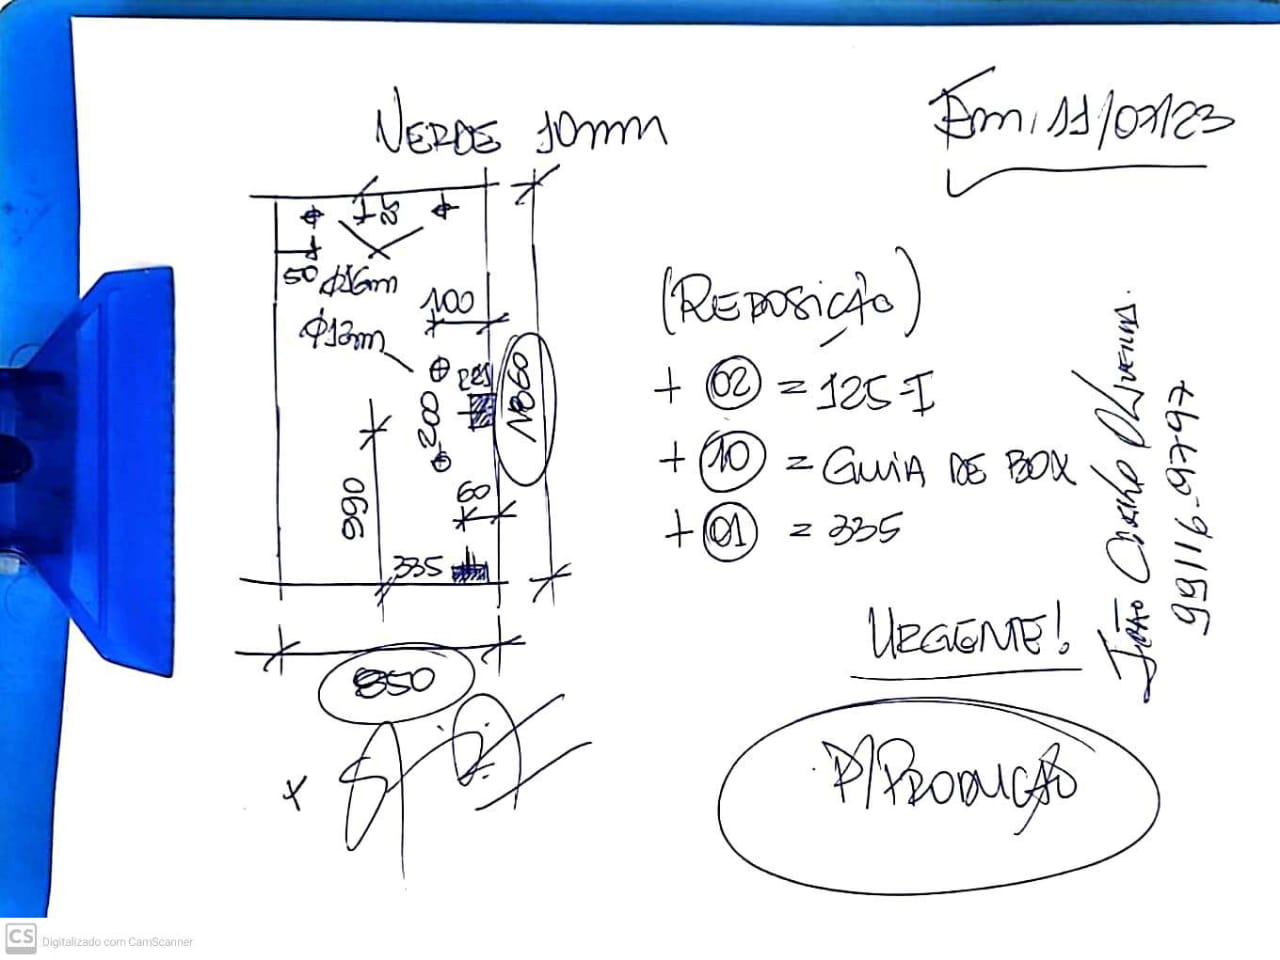 VERDE 10mm
Em, 11/07/23
50
Φ16m
100
Φ12m
200
1860
990
60
335
850
(REPOSIÇÃO)
+ 02 = 125-I
+ 10 = GUIA DE BOX
+ 01 = 335
URGENTE!
P/PRODUÇÃO
João
99116-9797
CS Digitalizado com CamScanner